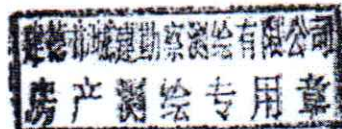 建德市城建勘察测绘有限公司
房产测绘专用章